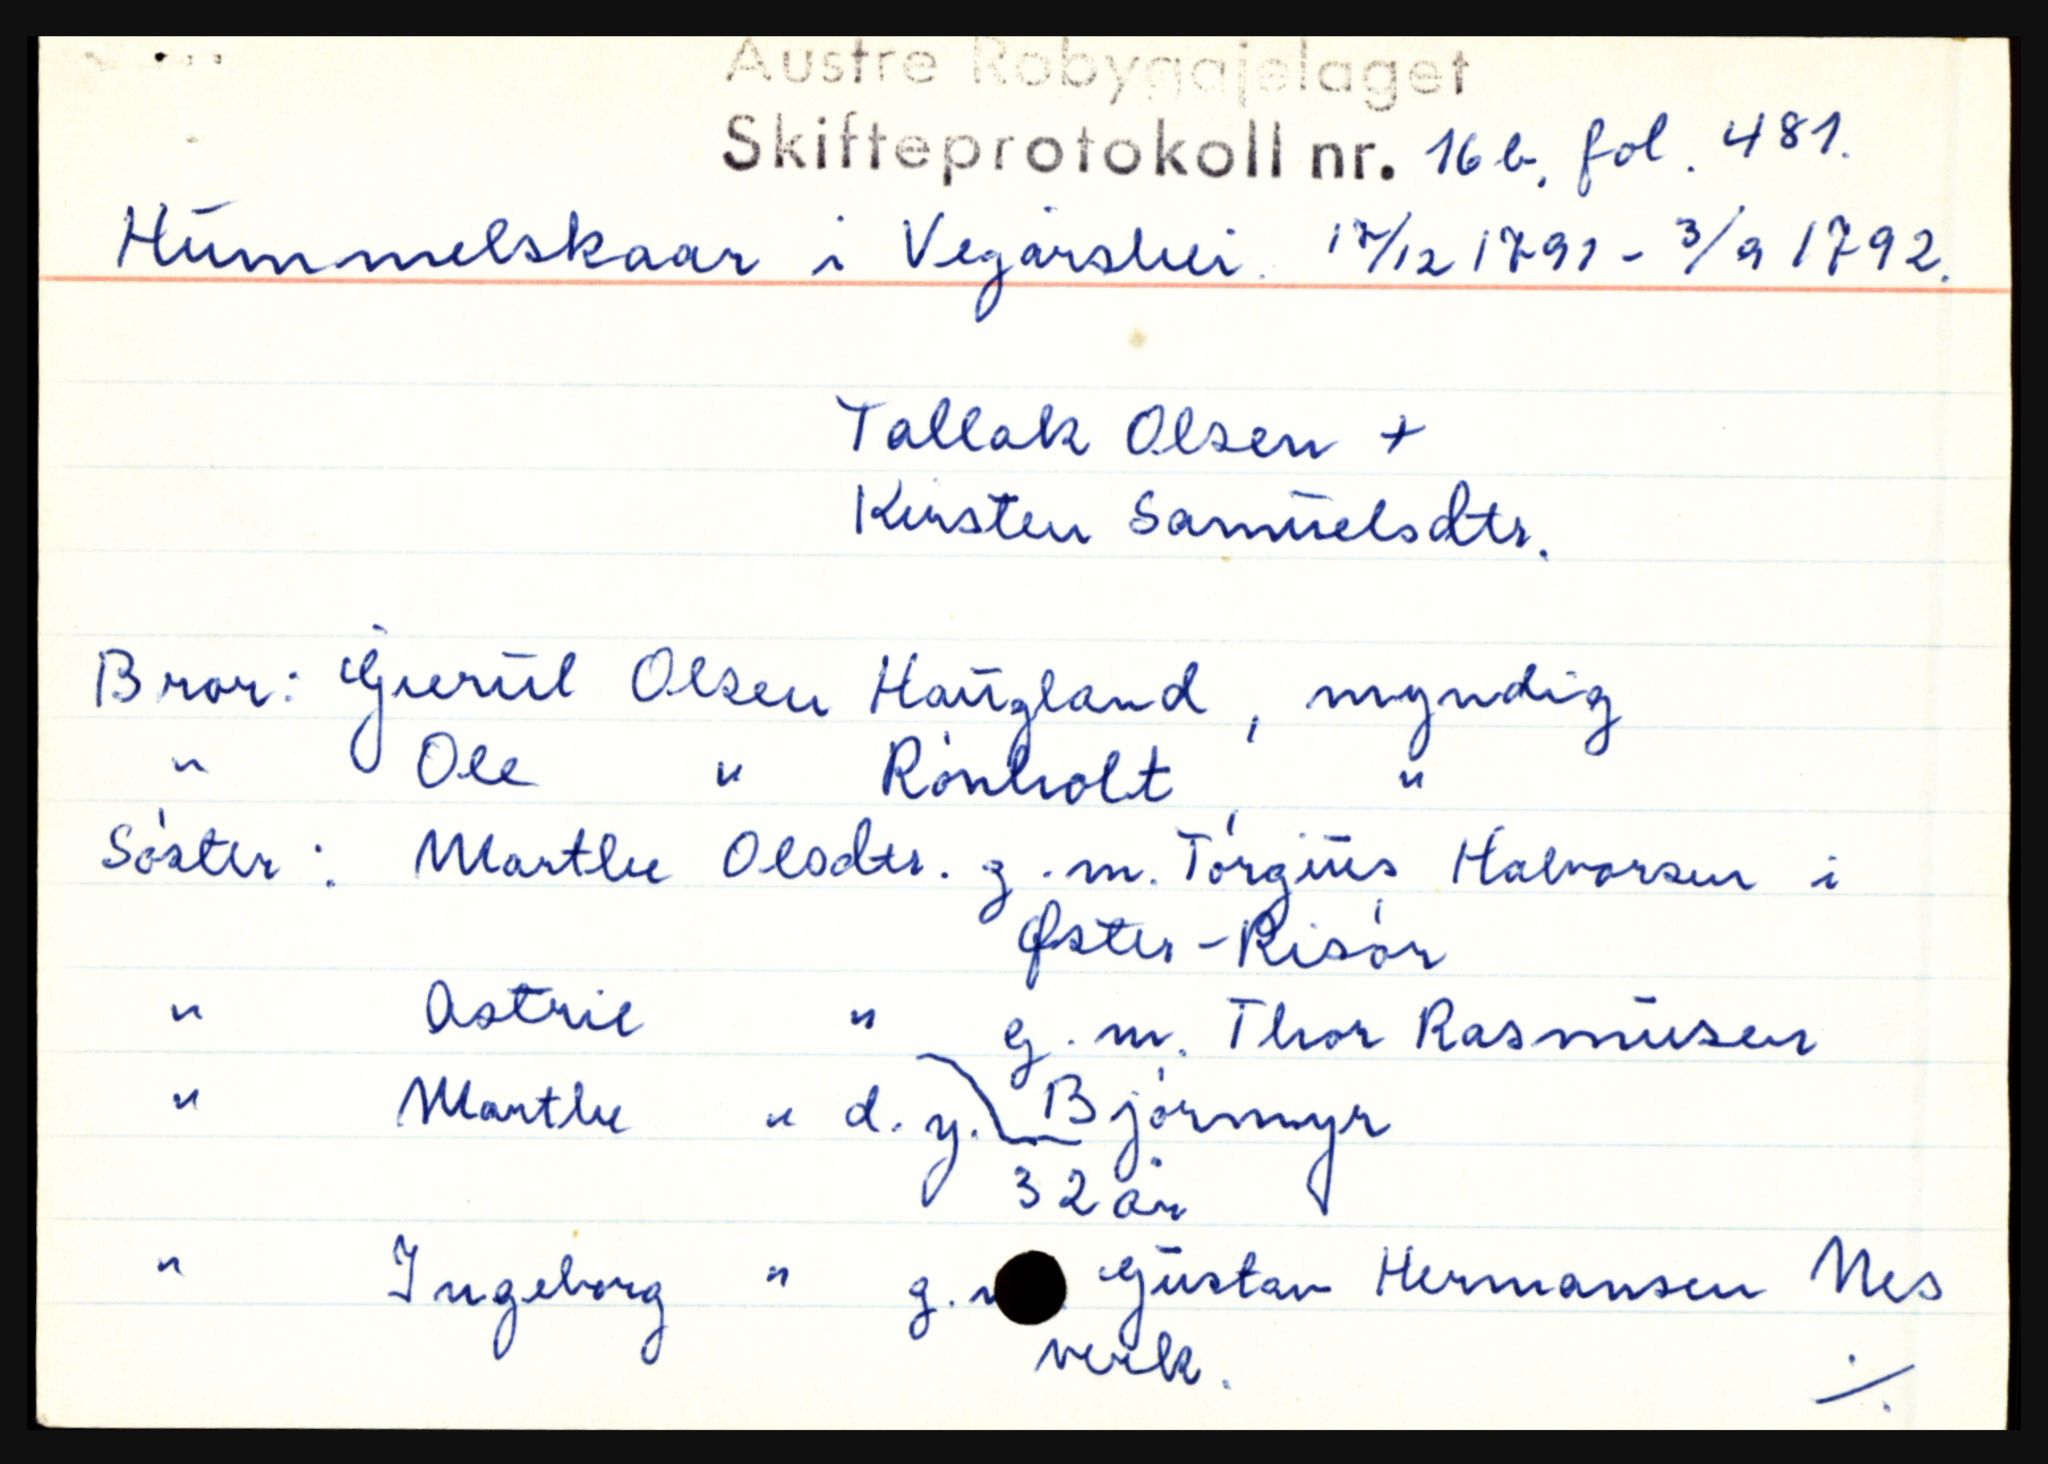 Austre Robyggjelaget
Skifteprotokoll nr. 16 b, fol. 481.
Hummelskaar i Vegårshei. 17/12 1791 - 3/9 1792.
Tallak Olsen +
Kirsten Samuelsdtr.
Bror: Gjerul Olsen Haugland, myndig
" Ole " Rönholt, "
Söster: Marthe Olsdtr. g.m. Törgius Halvorsen i
Øster-Risör
" Astrie " g.m. Thor Rasmusen
" Marthe " d.y. Björmyr
32 år
" Ingeborg " g.m. Gustav Hermansen Nes
verk.
./.